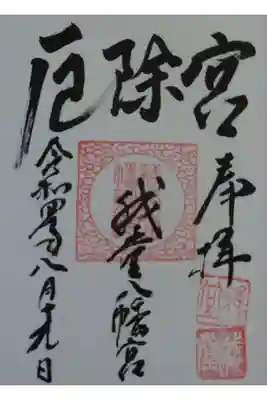 厄除宮
奉拝
我堂八幡宮
令和四年八月十九日